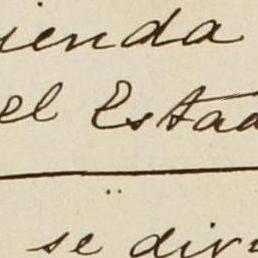 ienda
el Estad
se dir